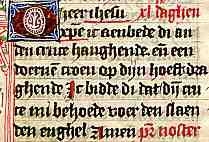 O heer ihesu xl daghen
xpe ic aenbede di an
den cruce hanghende. eñ een
doernē croen op dijn hoeft dra
ghende Ic bidde di dat dijn cru
ce mi behoede voer den slaen
den enghel Amen pr̄ noster